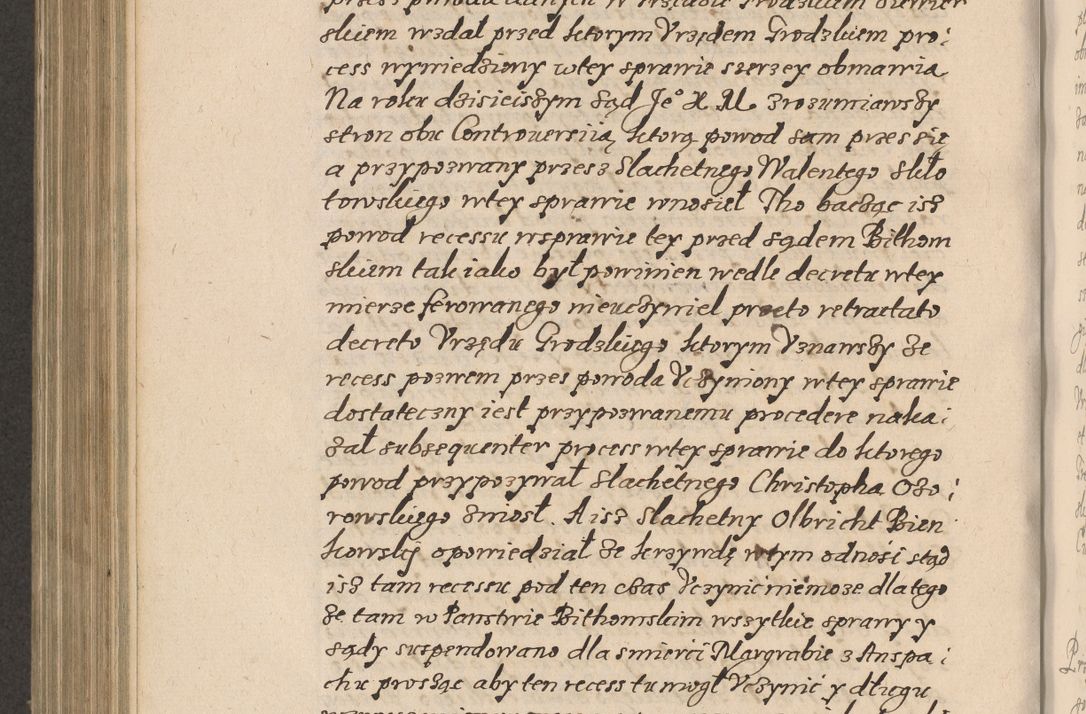 skiem wzdał przed ktorym Vrzędem Grodzkiem pro:
cess wywiedziony wtey sprawie szerzey obmawia
Na roku dzisieiszym sąd Je° X M. zrozumiawszy
stron obu Controuersiią ktorą powod sam przes się
a przypozwany przesz Slachetnego Walentego Skło
towskiego wtey sprawie wnosieł Tho bacząc isz
powod recessu wsprawie tey przed sądem Bithom
skiem tak iako był powinien wedle decretu wtey
mierze ferowanego nieuczyniel proeto retractato
decreto Vrzędu Grodzkiego ktorym Vznawszy że
recess pozwem przes powoda Vczyniony wtey sprawie
dostateczny iest przypozwanemu procedere naka:
zał subsequenter process wtey sprawie do ktorego
powod przypozywał Slachetnego Christopha Ozo:
rowskiego zniosł. A isz Slachetny Olbricht Bien
kowskij opowiedział że krzywdę wtym odnosi stąd
isz tam recessu pod ten czas Vczynić niemoze dlatego
że tam w Panstwie Bithomskim wszytkie sprawy y
sądy suspendowano dla smierci Margrabie z Anspa:
chu prosząc aby ten recess tu mogł Vczynić y długu